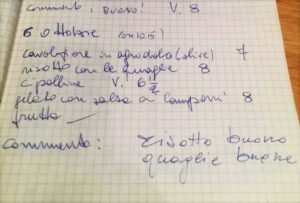 commento: BUONO! V. 8
6 Ottobre (ore 10.5)
cavolfiore in agrodolce (olive) 7
risotto con le quaglie 8
cipolline V. 6
gelato con salsa di lamponi 8
frutta —
commento: risotto buono
quaglie buone